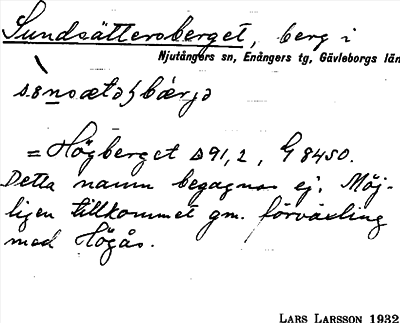 Sundsättersberget, berg i
Njutångers sn, Enångers tg, Gävleborgs län
= Högberget Δ91,2, G 8450.
Detta namn begagnas ej. Möj-
ligen tillkommet gm. förväxling
med Högås.
LARS LARSSON 1932